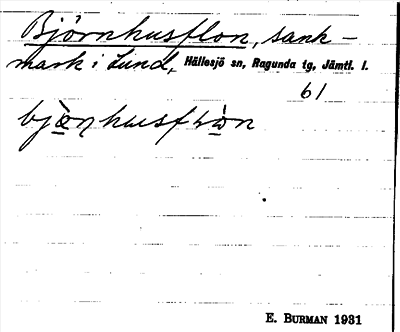 Björnhusflon, sank-
mark i Lund, Hällesjö sn, Ragunda tg, Jämtl. l.
61
E. BURMAN 1931